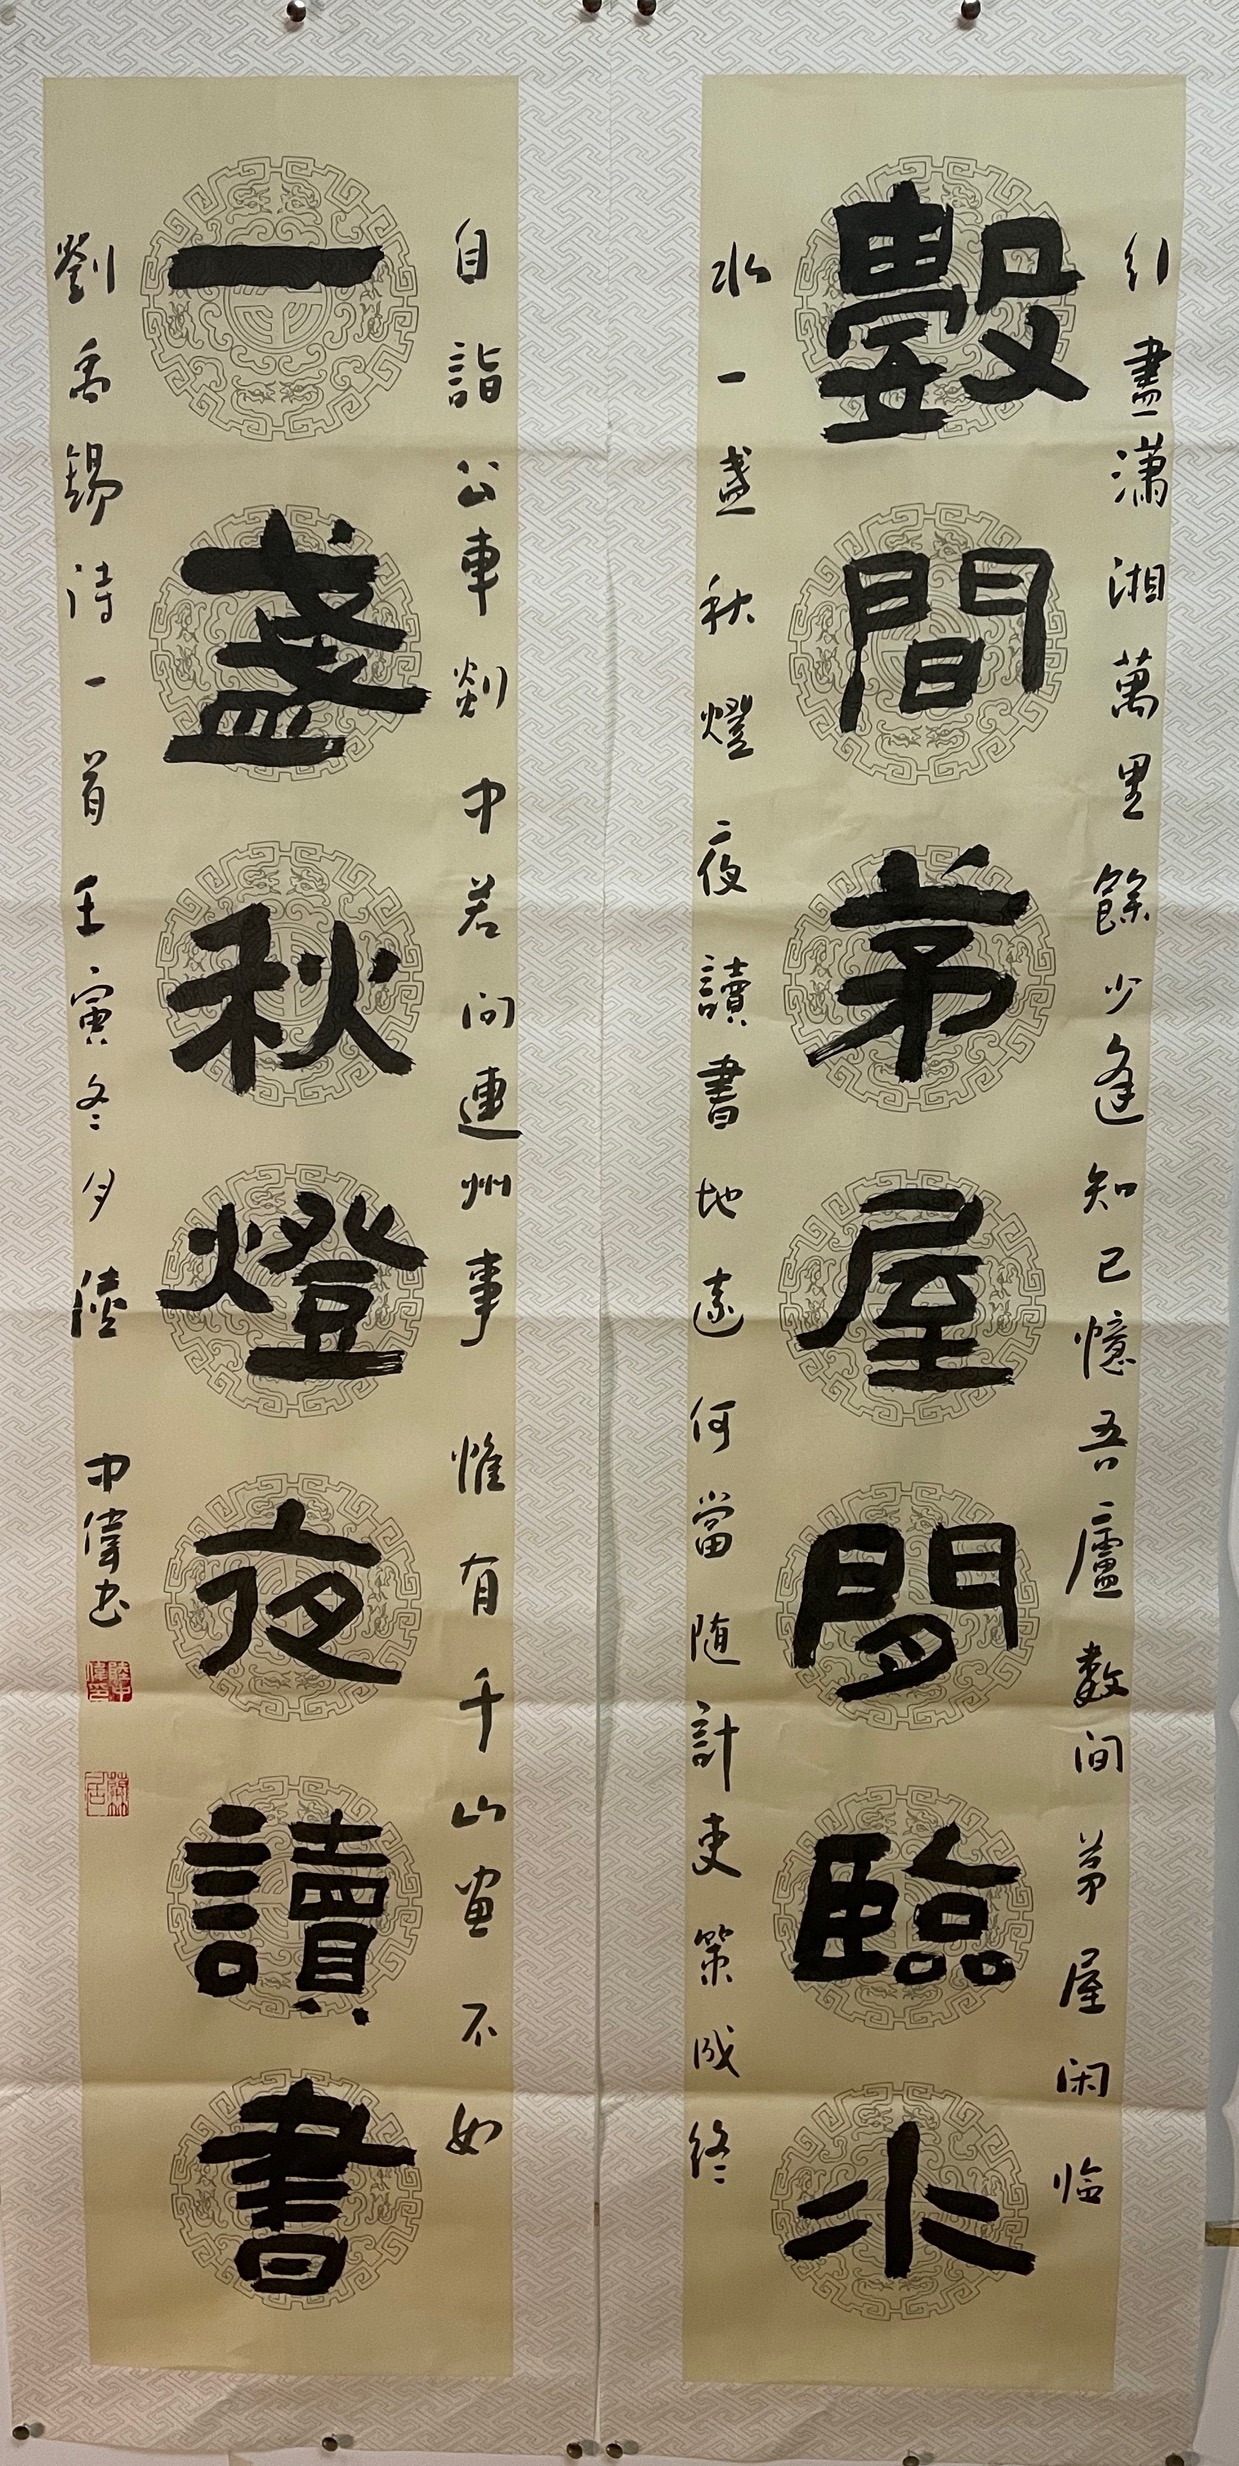 行盡瀟湘萬里餘少逢知己憶吾廬數间茅屋闲临
數間茅屋閒臨水
水一盞秋燈夜讀書地遠何當随計吏策成終
自詣公車剡中若问連州事惟有千山畫不如
一盞秋燈夜讀書
劉禹錫詩一首壬寅冬月陸中偉书
陸中偉印